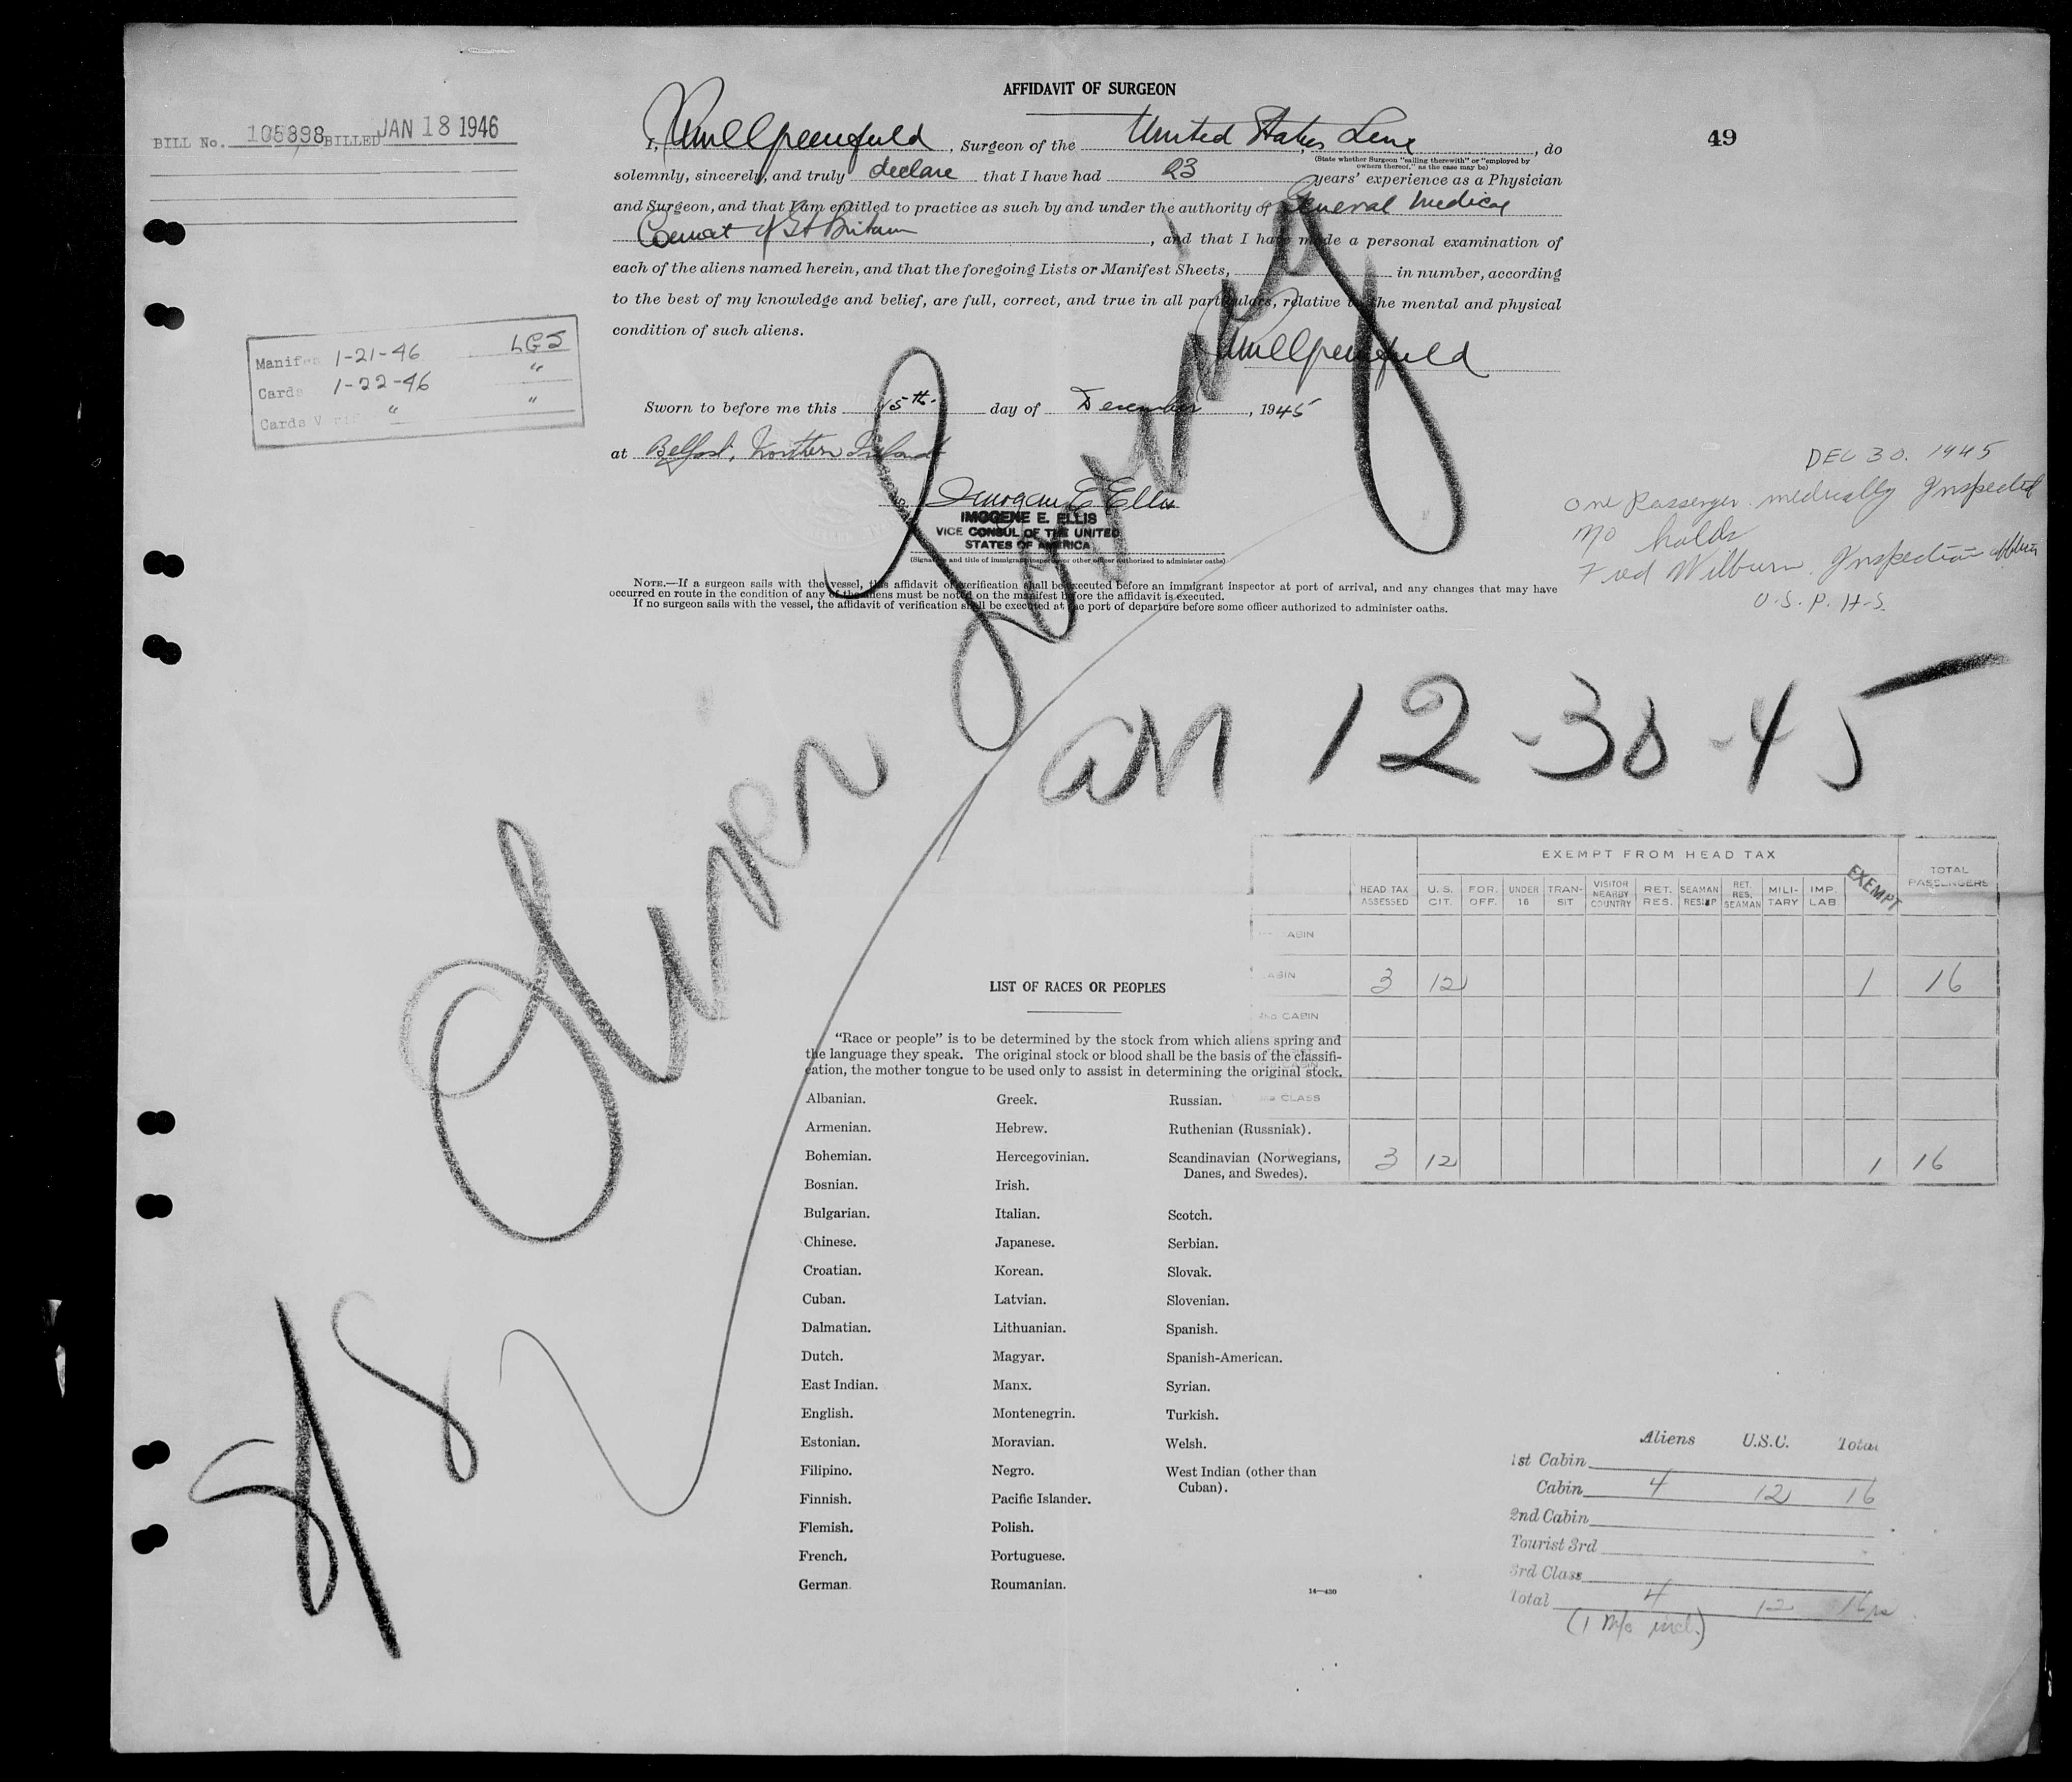 AFFIDAVIT OF SURGEON
49
BILL No. 105898 BILLED JAN 18 1946
I, , Surgeon of the United States Line , do
(State whether Surgeon "sailing therewith" or "employed by
owners thereof," as the case may be)
solemnly, sincerely, and truly declare that I have had 23 years' experience as a Physician
and Surgeon, and that I am entitled to practice as such by and under the authority of General Medical
of Gt Britain , and that I have made a personal examination of
each of the aliens named herein, and that the foregoing Lists or Manifest Sheets, in number, according
to the best of my knowledge and belief, are full, correct, and true in all particulars, relative to the mental and physical
condition of such aliens.
Manifes 1-21-46 LGS
Cards 1-22-46 "
Cards Verif " "
Sworn to before me this 15th day of December , 1945
at Belfast, Northern Ireland
Imogene E Ellis
IMOGENE E. ELLIS
VICE CONSUL OF THE UNITED
STATES OF AMERICA
(Signature and title of immigrant inspector or other officer authorized to administer oaths)
NOTE.—If a surgeon sails with the vessel, this affidavit of verification shall be executed before an immigrant inspector at port of arrival, and any changes that may have
occurred en route in the condition of any of the aliens must be noted on the manifest before the affidavit is executed.
If no surgeon sails with the vessel, the affidavit of verification shall be executed at the port of departure before some officer authorized to administer oaths.
DEC 30. 1945
One Passenger medically Inspected
no holds
Fred Wilburn. Inspection officer
U.S.P.H.S.
S/S
am 12-30-45
EXEMPT FROM HEAD TAX
HEAD TAX ASSESSED U.S. CIT. FOR. OFF. UNDER 16 TRAN-SIT VISITOR NEARBY COUNTRY RET. RES. SEAMAN RESHIP RET. RES. SEAMAN MILI-TARY IMP. LAB. EXEMPT TOTAL PASSENGERS
CABIN
CABIN 3 12 1 16
2ND CABIN
CLASS
3 12 1 16
LIST OF RACES OR PEOPLES
"Race or people" is to be determined by the stock from which aliens spring and
the language they speak. The original stock or blood shall be the basis of the classifi-
cation, the mother tongue to be used only to assist in determining the original stock.
Albanian.
Armenian.
Bohemian.
Bosnian.
Bulgarian.
Chinese.
Croatian.
Cuban.
Dalmatian.
Dutch.
East Indian.
English.
Estonian.
Filipino.
Finnish.
Flemish.
French.
German.
Greek.
Hebrew.
Hercegovinian.
Irish.
Italian.
Japanese.
Korean.
Latvian.
Lithuanian.
Magyar.
Manx.
Montenegrin.
Moravian.
Negro.
Pacific Islander.
Polish.
Portuguese.
Roumanian.
Russian.
Ruthenian (Russniak).
Scandinavian (Norwegians,
Danes, and Swedes).
Scotch.
Serbian.
Slovak.
Slovenian.
Spanish.
Spanish-American.
Syrian.
Turkish.
Welsh.
West Indian (other than
Cuban).
14—430
Aliens U.S.C. Total
1st Cabin
Cabin 4 12 16
2nd Cabin
Tourist 3rd
3rd Class
Total 4 12 16
(1 M/c incl.)